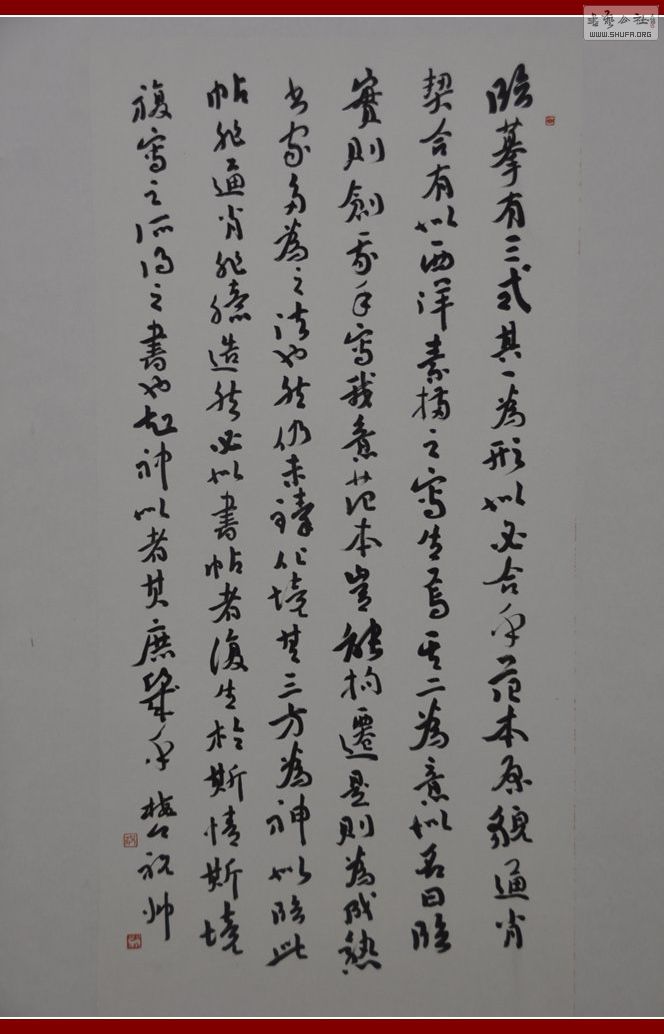 臨摹有三式其一為形似必合乎范本原貌逼肖
契合有似西洋素描之寫生焉其二為意似名曰臨
實則創我手寫我意范本豈能拘遷是則為成熟
書家多為之法也然仍未臻化境其三方為神似臨此
帖非逼肖非臆造然必以書帖者復生於斯情斯境
複寫之所得之書也起神似者其庶幾乎
祝帅
书艺公社
WWW.SHUFA.ORG